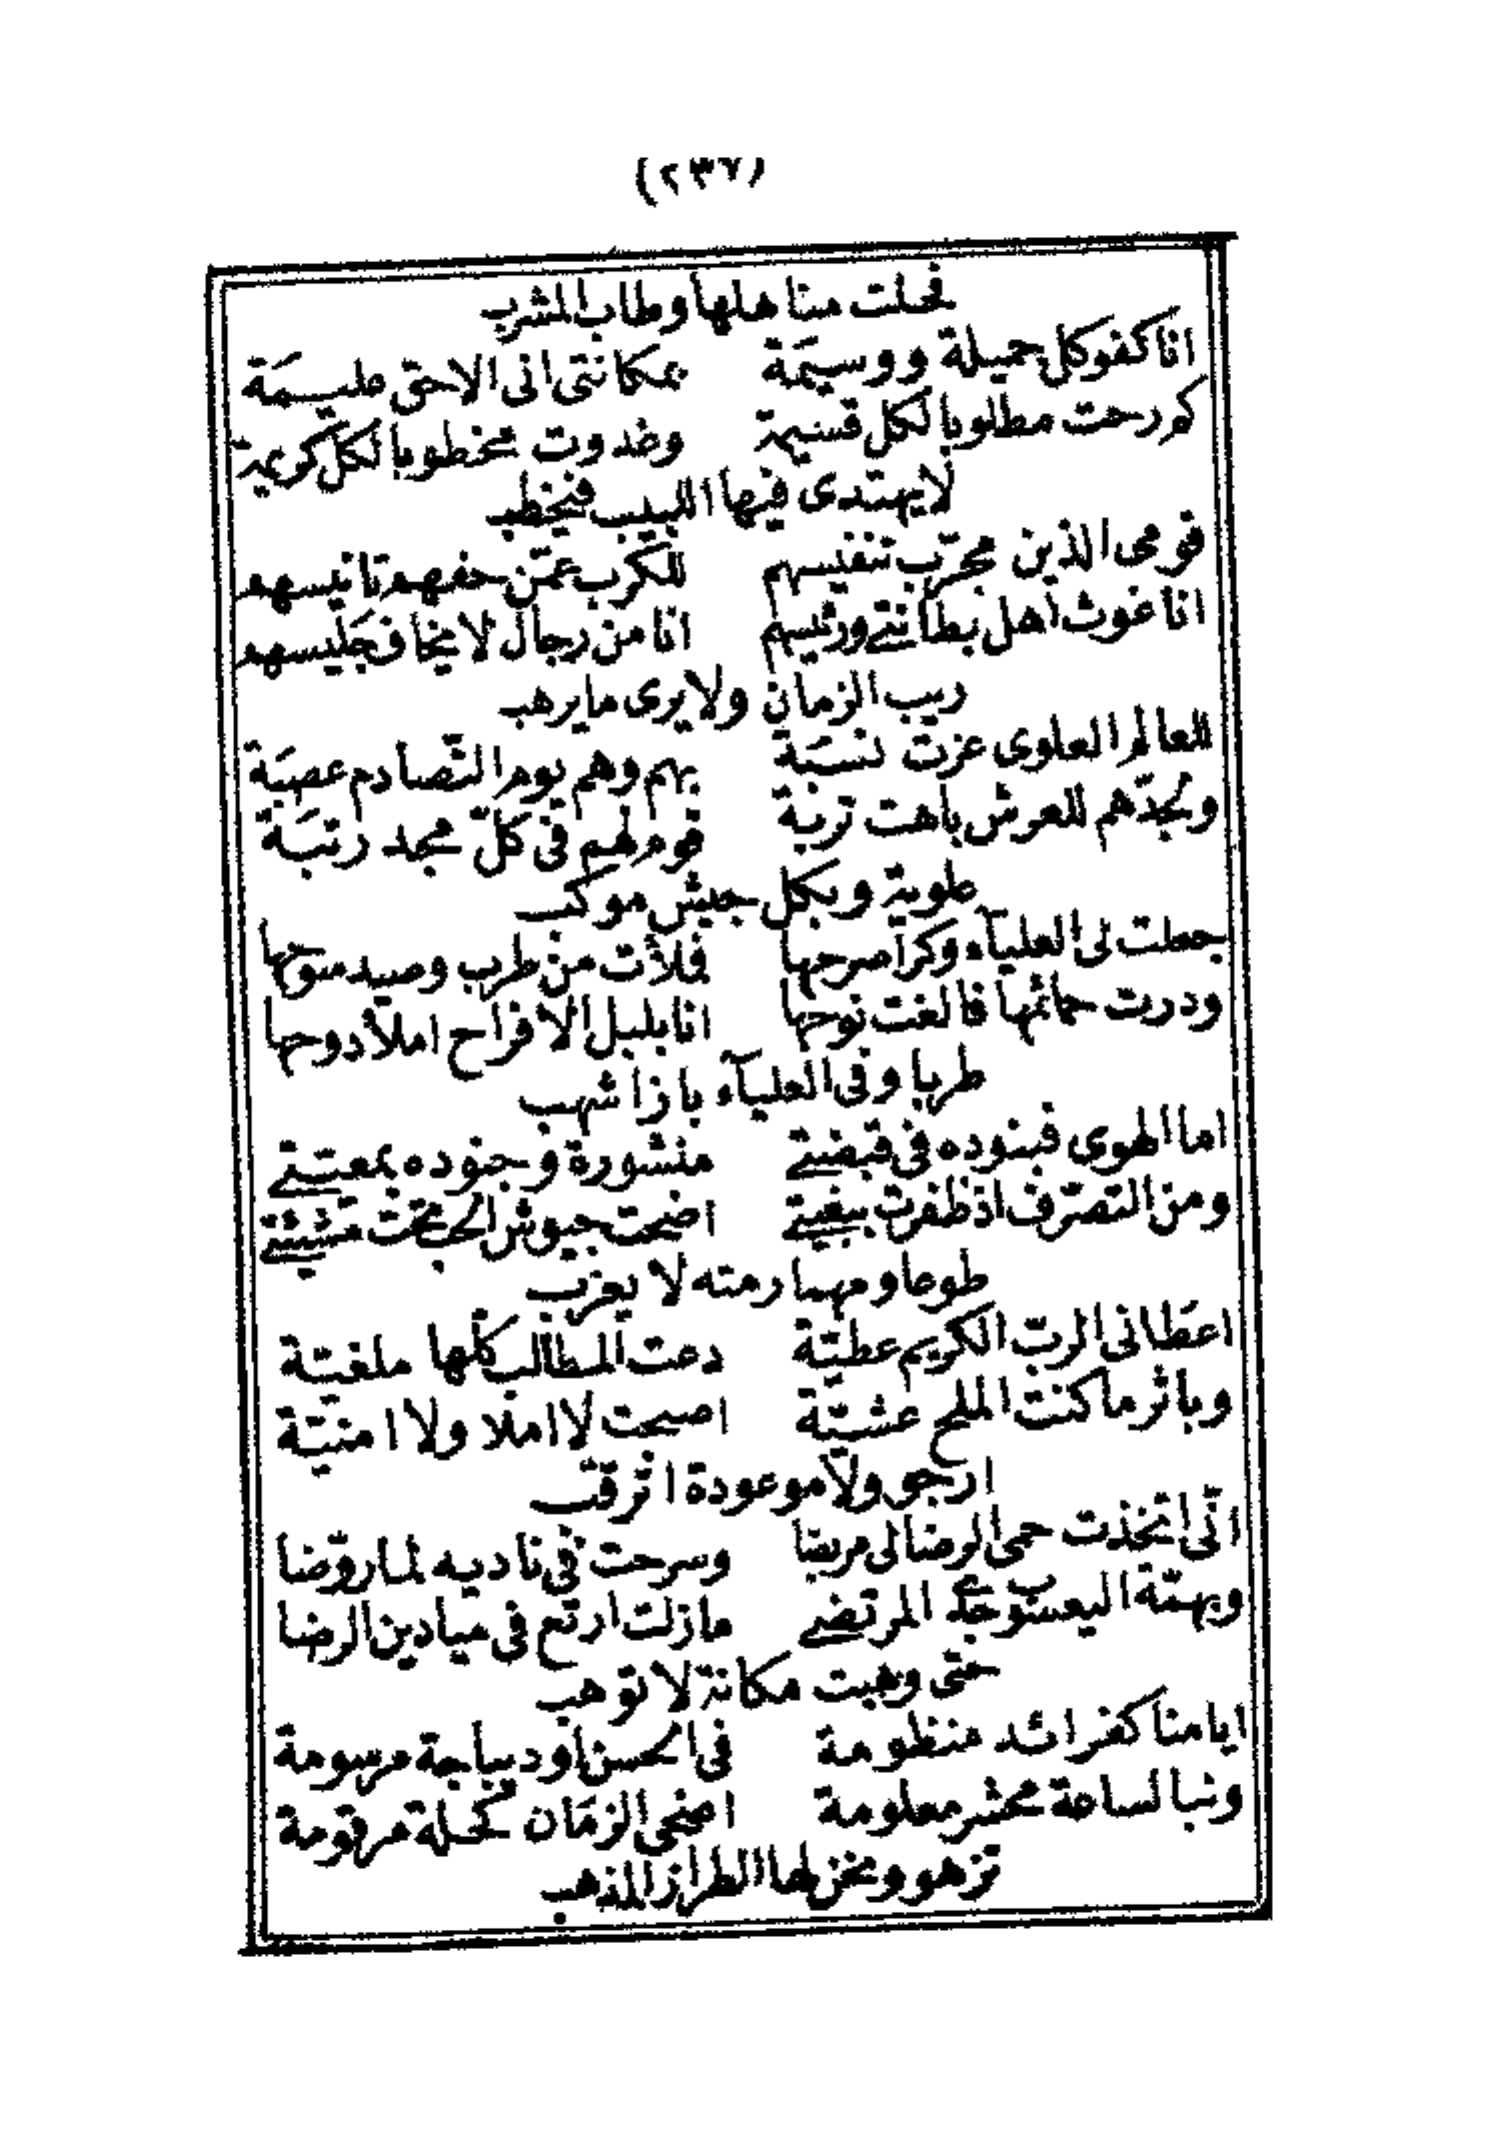 (٢٣٧)
فحلت مناهلها وطاب المشرب
انا كفو كل جميلة ووسيمة بمكانتى انى الاحق عليمة
كم رحت مطلوبا لكل قسيمة وغدوت مخطوبا لكل كريمة
لا يهتدى فيها اللبيب فيخطب
قومى الذين مجرّب تنفيسهم للكرب عمّن حفهم تانيسهم
انا غوث اهل بطانتى ورئيسهم انا من رجال لا يخاف جليسهم
ريب الزمان ولا يرى ما يرهب
للعالم العلوى عزت نسبة بهم وهم يوم التصادم عصبة
وبجدّهم للعرش باهت تربة قوم لهم فى كلّ مجد رتبة
علوية وبكل جيش موكب
جعلت لى العليآء وكرا صرحها فملأت من طرب وصيد سوحها
ودرت حمائمها فالغت نوحها انا بلبل الافراح املأ دوحها
طربا وفى العليآء باز اشهب
اما الهوى فبنوده فى قبضتى منشورة وجنوده بمعيتى
ومن التصرّف اذ ظفرت ببغيتى اضحت جيوش الحب تحت مشيئتى
طوعا ومهما رمته لا يعزب
اعطانى الرب الكريم عطيّة دعت المطالب كلها ملغيّة
وباثر ما كنت الملح عشيّة اصبحت لا املا ولا امنيّة
ارجو ولا موعودة اترقب
انّى اتخذت حمى الرضا لى مربضا وسرحت فى ناديه لما روّضا
وبهمّة اليعسوب جد المرتضى ما زلت ارتع فى ميادين الرضا
حتى وهبت مكانة لا توهب
ايامنا كفرائد منظومة فى الحسن او ديباجة مرسومة
ونبا لساعة محشر معلومة اضحى الزمان كحلة مرقومة
تزهو ونحن لها الطراز المذهب